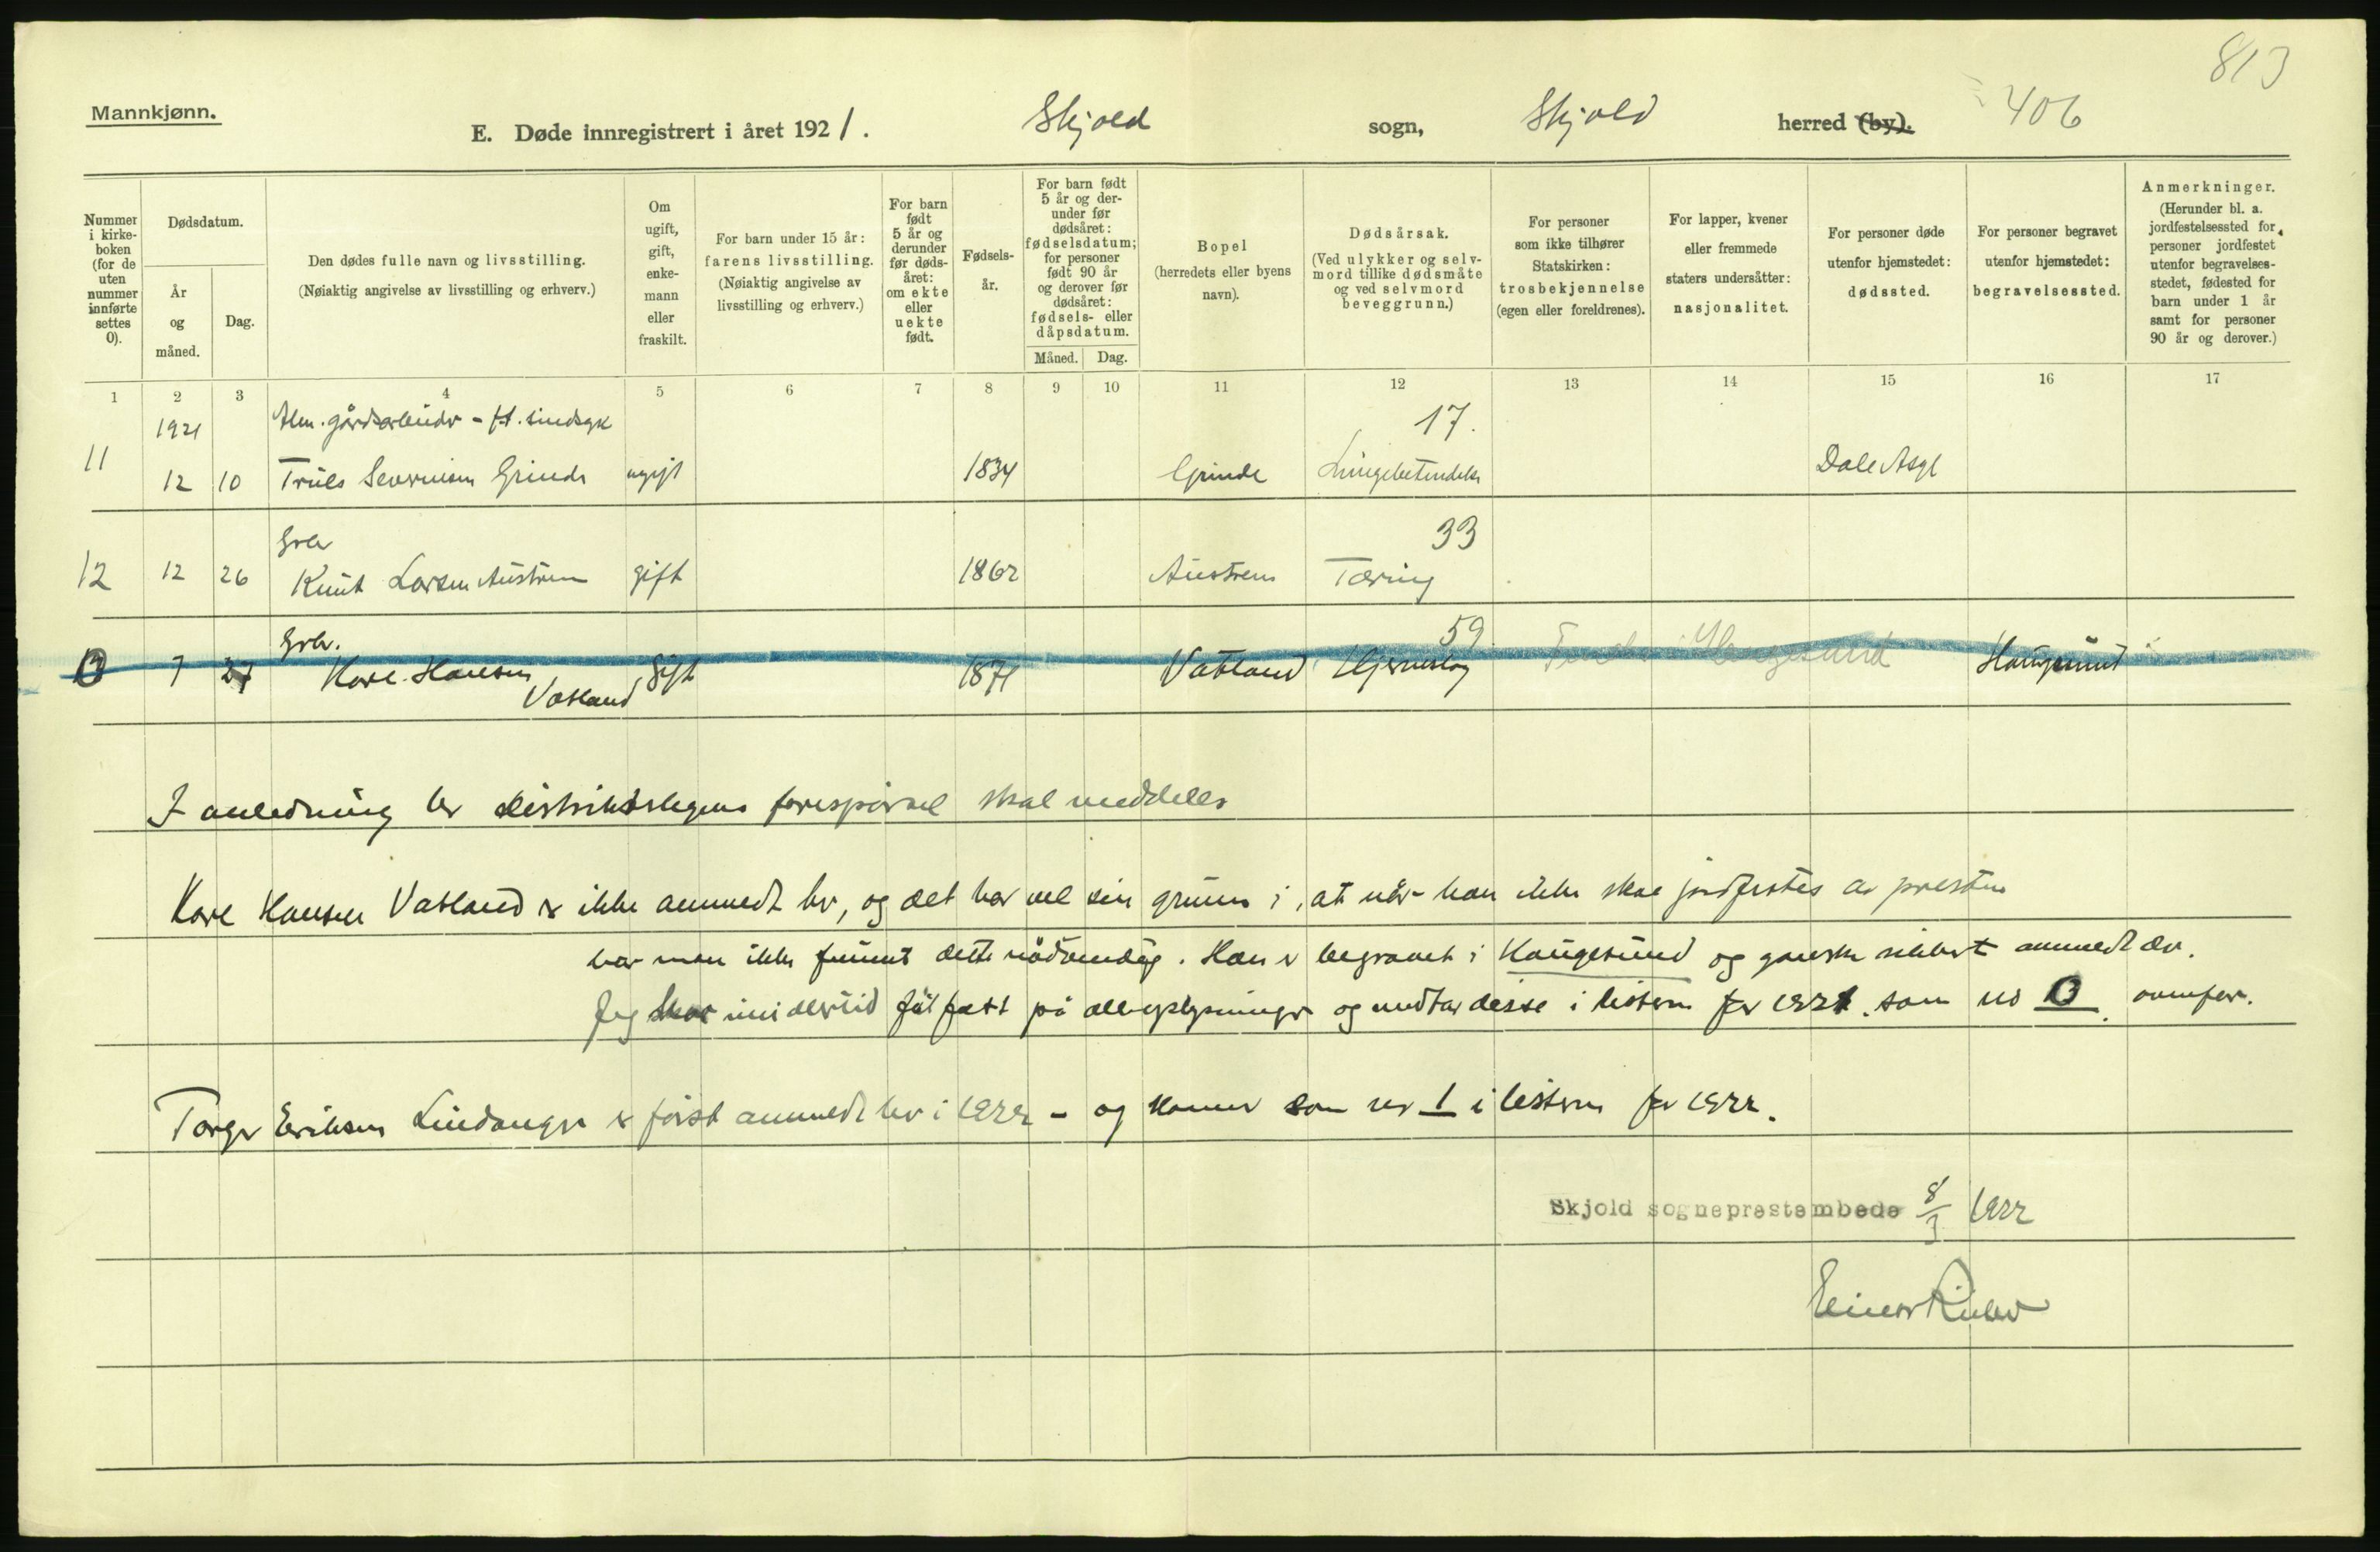 813
Mannkjønn.
E. Døde innregistrert i året 1921. Skjold sogn, Skjold herred (by). 406
Nummer i kirke- boken (for de uten nummer innførte settes 0).
Dødsdatum.
År og måned.
Dag.
Den dødes fulle navn og livsstilling.
(Nøiaktig angivelse av livsstilling og erhverv.)
Om ugift, gift, enke- mann eller fraskilt.
For barn under 15 år: farens livsstilling.
(Nøiaktig angivelse av livsstilling og erhverv.)
For barn født 5 år og derunder før døds- året: om ekte eller uekte født.
Fødsels- år.
For barn født 5 år og der- under før dødsåret: fødselsdatum; for personer født 90 år og derover før dødsåret: fødsels- eller dåpsdatum.
Måned. Dag.
Bopel
(herredets eller byens navn).
Dødsårsak.
(Ved ulykker og selv- mord tillike dødsmåte og ved selvmord beveggrunn.)
For personer som ikke tilhører Statskirken: trosbekjennelse (egen eller foreldrenes).
For lapper, kvener eller fremmede staters undersåtter: nasjonalitet.
For personer døde utenfor hjemstedet: dødssted.
For personer begravet utenfor hjemstedet: begravelsessted.
Anmerkninger.
(Herunder bl. a. jordfestelsessted for personer jordfestet utenfor begravelses- stedet, fødested for barn under 1 år samt for personer 90 år og derover.)
1 2 3 4 5 6 7 8 9 10 11 12 13 14 15 16 17
1921 gårdsarbeider - ft. sindsyk 17.
11 12 10 Truls Severinsen Grinde ugift 1834 Grinde Lungebetendelse Dale Asyl
Grb 33
12 12 26 Knut Larsen Austrem gift 1862 Austrem Tæring
Grb. 59
13 7 27 Karl Hansen Vatland gift 1871 Vatland Hjerneslag Haugesund Haugesund
I anledning av distriktslegens forespørsel skal meddeles
Karl Hansen Vatland er ikke anmeldt her, og det har vel sin grunn i, at når han ikke skal jordfestes av presten
har man ikke funnet dette nødvendig. Han er begravet i Haugesund og ganske sikkert anmeldt der.
Jeg har imidlertid fåt fatt på alle oplysninger og medtar disse i listen for 1921 som no 13 ovenfor.
Torger Eriksen Lindanger er først anmeldt her i 1922 - og kommer som no 1 i listen for 1922.
Skjold sogneprestembede 8/3 1922
Einar